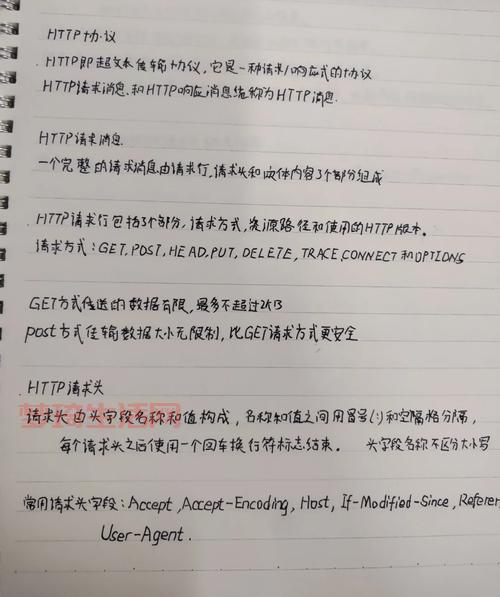 HTTP协议
HTTP即超文本传输协议,它是一种请求/响应式的协议
HTTP请求消息和HTTP响应消息统称为HTTP消息.
HTTP请求消息
一个完整的请求消息由请求行,请求头和实体内容3个部分组成
HTTP请求行包括3个部分,请求方式,资源路径和使用的HTTP版本。
请求方式:GET,POST,HEAD,PUT,DELETE,TRACE,CONNECT和OPTIONS
GET方式传送的数据有限,最多不超过2KB
post方式传输数据大小无限制,比GET请求方式更安全
HTTP请求头
请求头由头字段名称和值构成,名称和值之间用冒号(:)和空隔格分隔,
梦琦生活网
每个请求头之后使用一个回车换行符标志结束。 头字段名称不区分大小写
常用请求头字段:Accept,Accept-Encoding,Host,If-Modified-Since,Referer,
User-Agent.